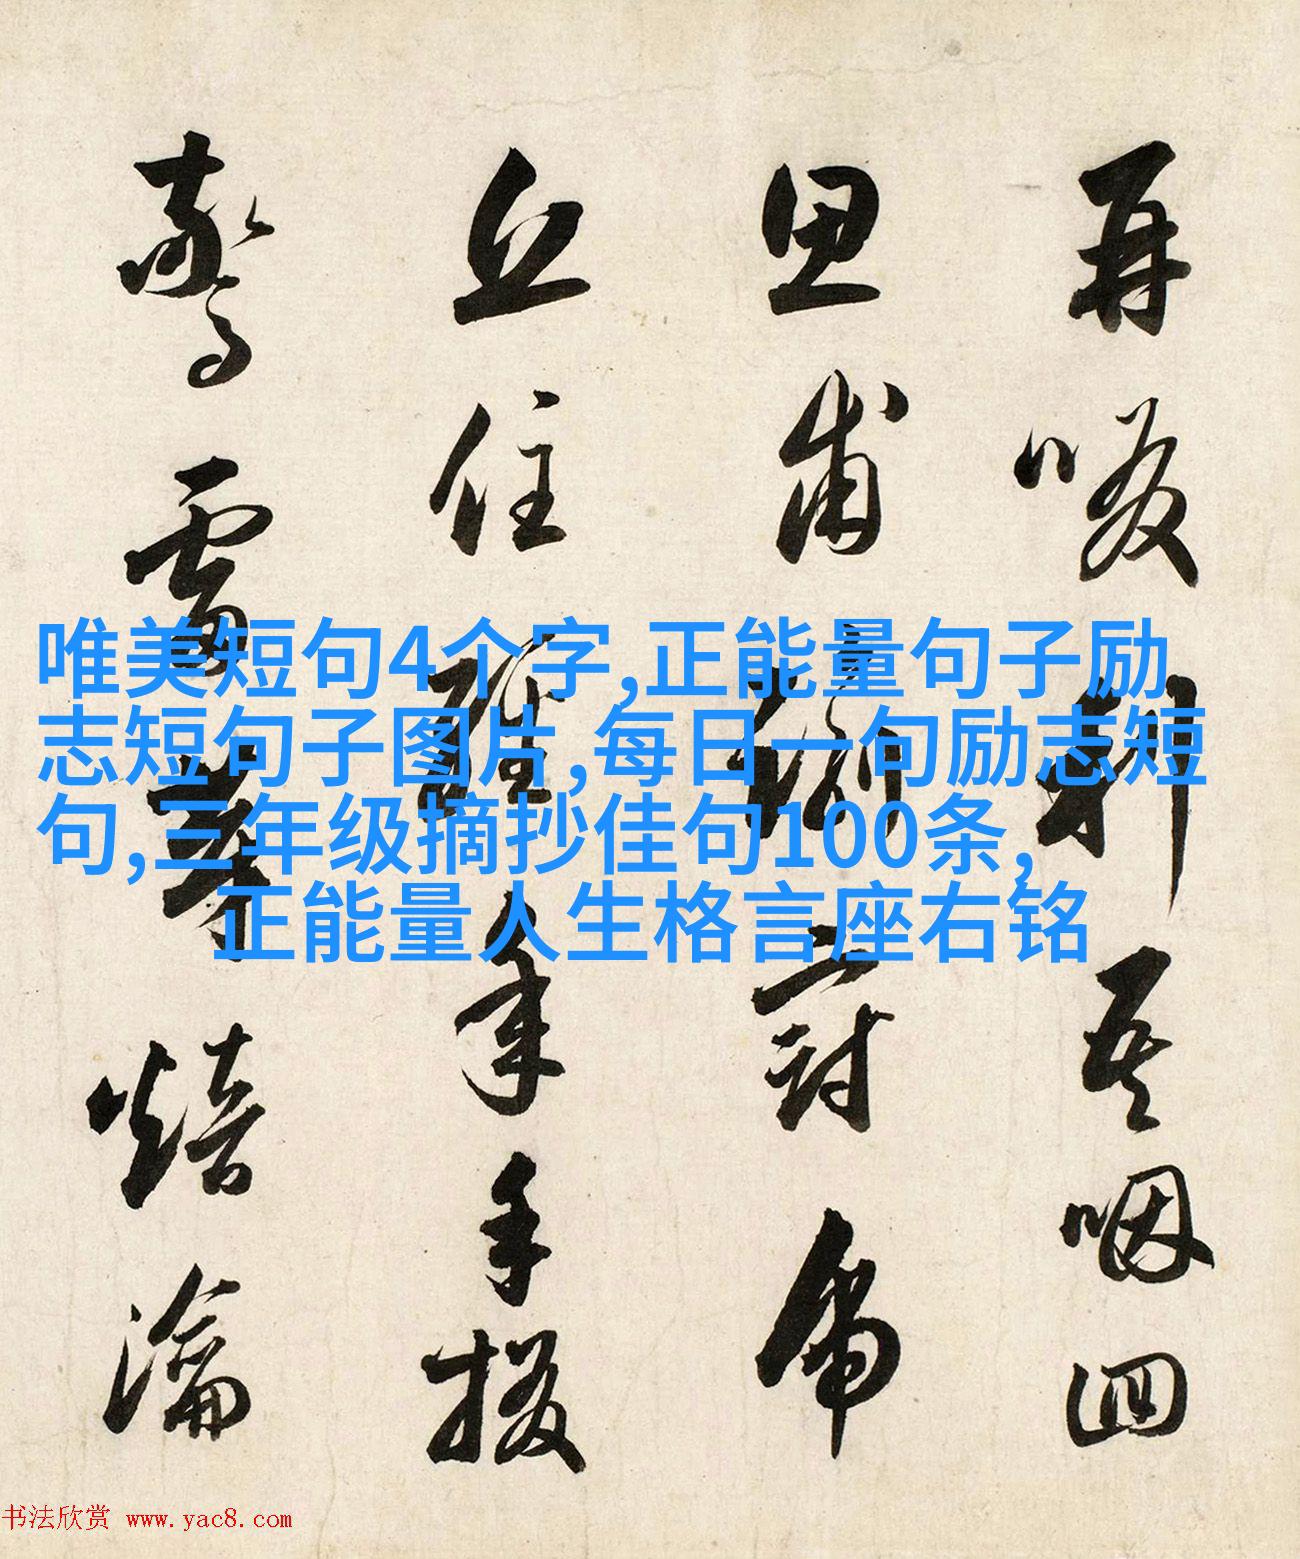 唯美短句4个字,正能量句子励
志短句子图片,每日一句励志短
句,三年级摘抄佳句100条,
正能量人生格言座右铭
再啜
思甫
丘住 年手掇
驚雷 焙瀹
书法欣赏 www.yac8.com